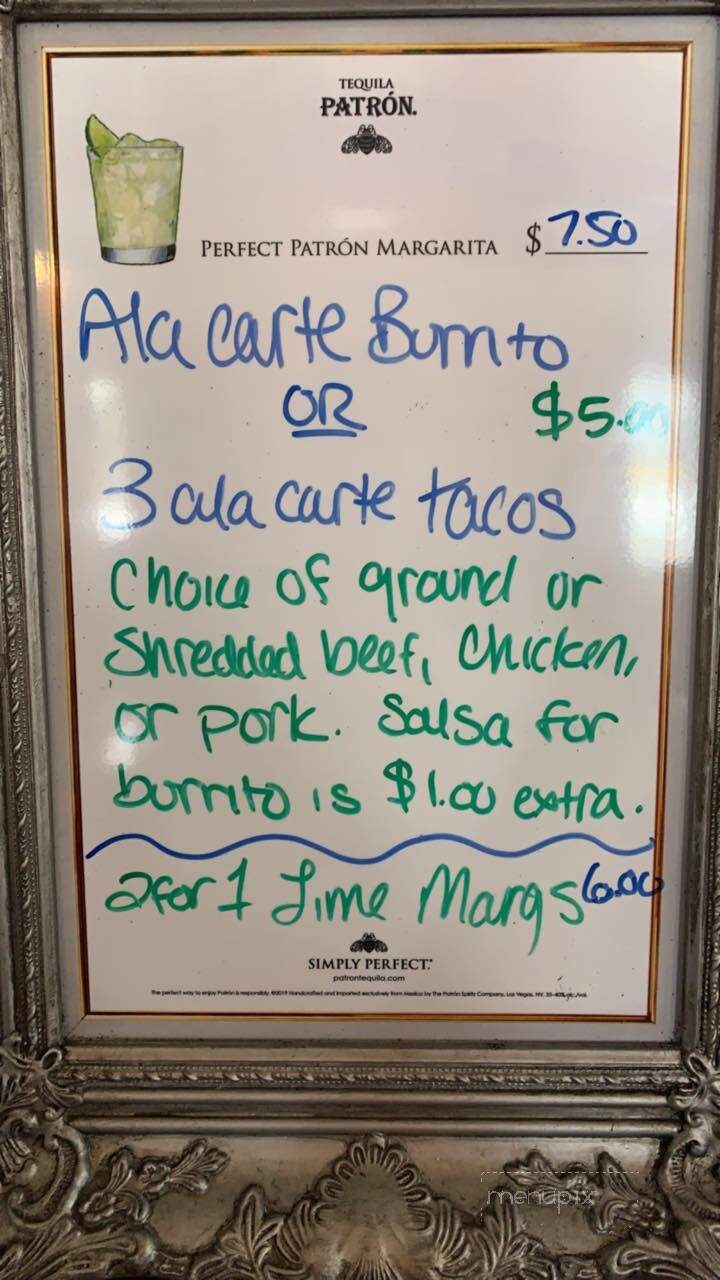 TEQUILA
PATRÓN.
PERFECT PATRÓN MARGARITA $ 7.50
Ala carte Burrito
OR $5.00
3 ala carte tacos
Choice of ground or
Shredded beef, Chicken,
or pork. Salsa for
burrito is $1.00 extra.
2 for 1 Lime Margs 6.00
SIMPLY PERFECT.
patrontequila.com
The perfect way to enjoy Patrón is responsibly. ©2019 Handcrafted and imported exclusively from Mexico by The Patrón Spirits Company, Las Vegas, NV.
menupix